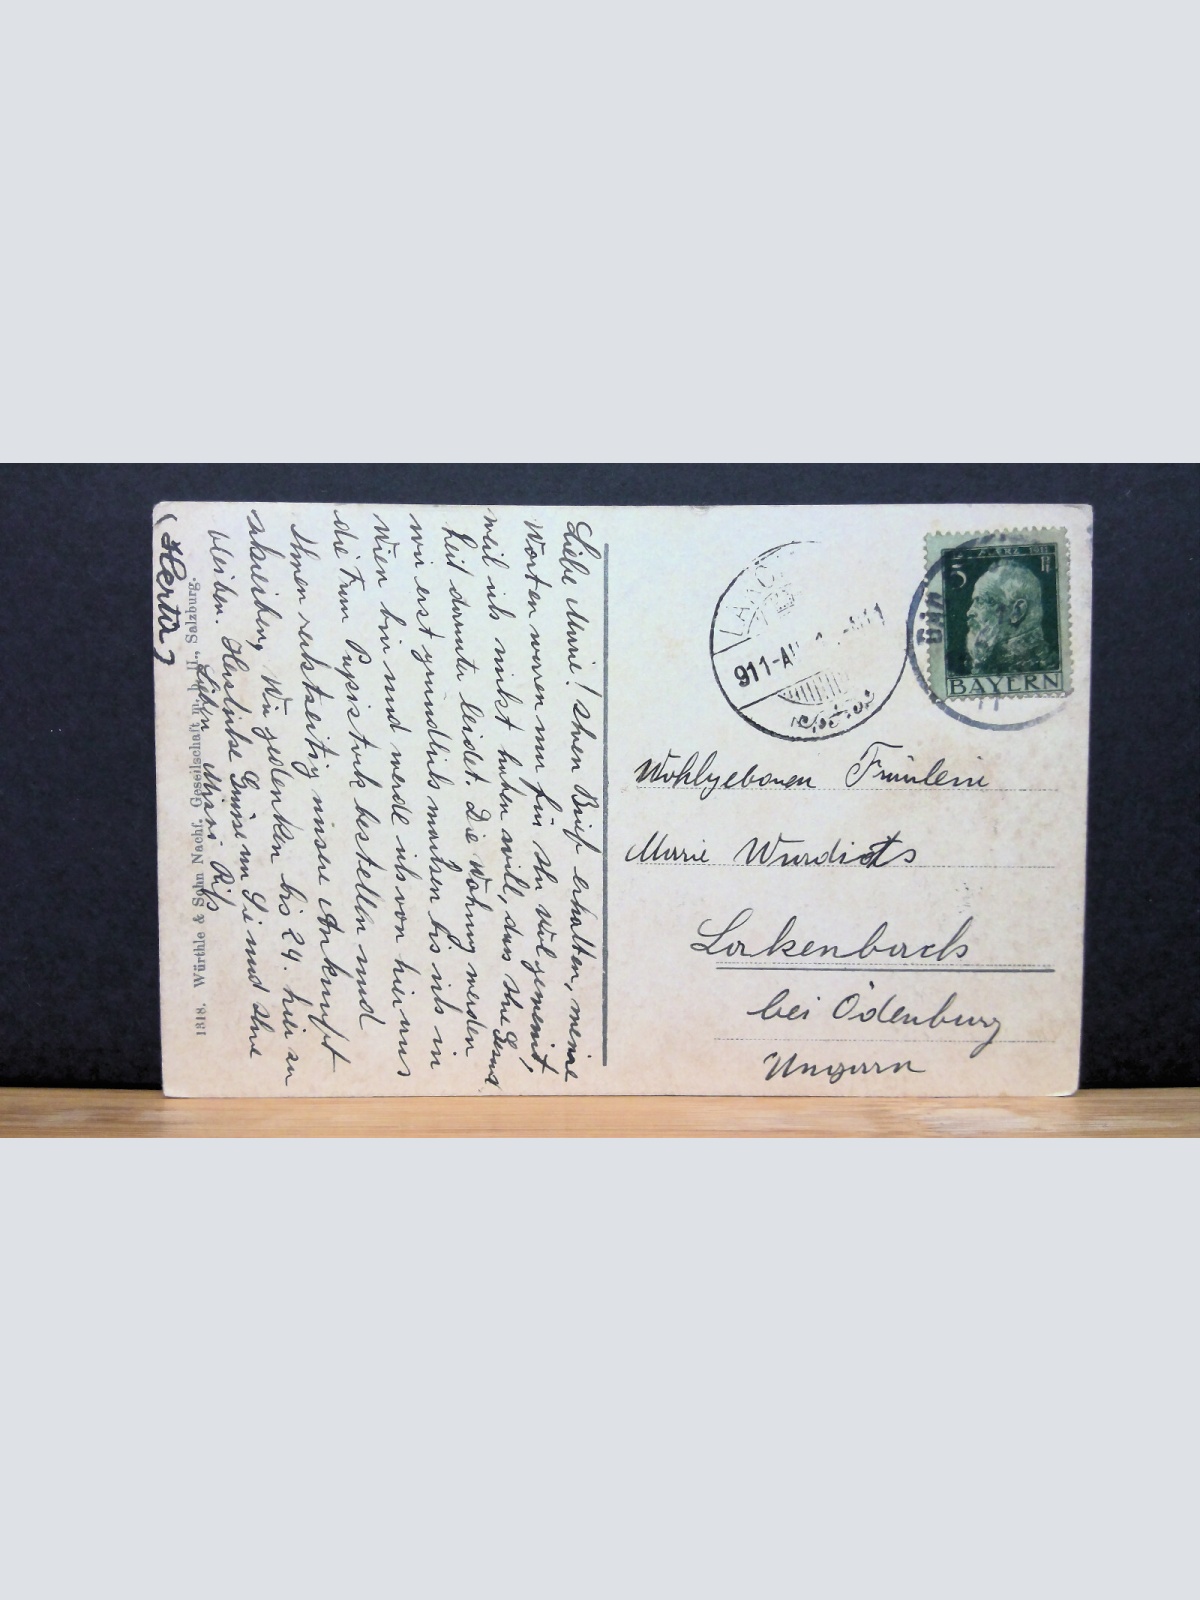 Liebe Marie! Ihren Brief erhalten, meine
Worten waren nur für Sie wol gemeint,
weil ich nicht haben will, dass Ihre Gesund
heit darunter leidet. Die Wohnung werden
wir erst gründlich machen bis ich in
Wien bin und werde ich von hier aus
die Frau bestellen und
Ihnen rechtzeitig unsere Ankunft
schreiben, Wir gedenken bis 24. hier zu
bleiben. Herzliche Grüsse an Sie und Ihre
Lieben
(Herta)
1818. Würthle & Sohn Nachf. Gesellschaft m. b. H., Salzburg.
911-AU
5
BAYERN
Wohlgeboren Fräulein
Marie
Lakenbach
bei Ödenburg
Ungarn